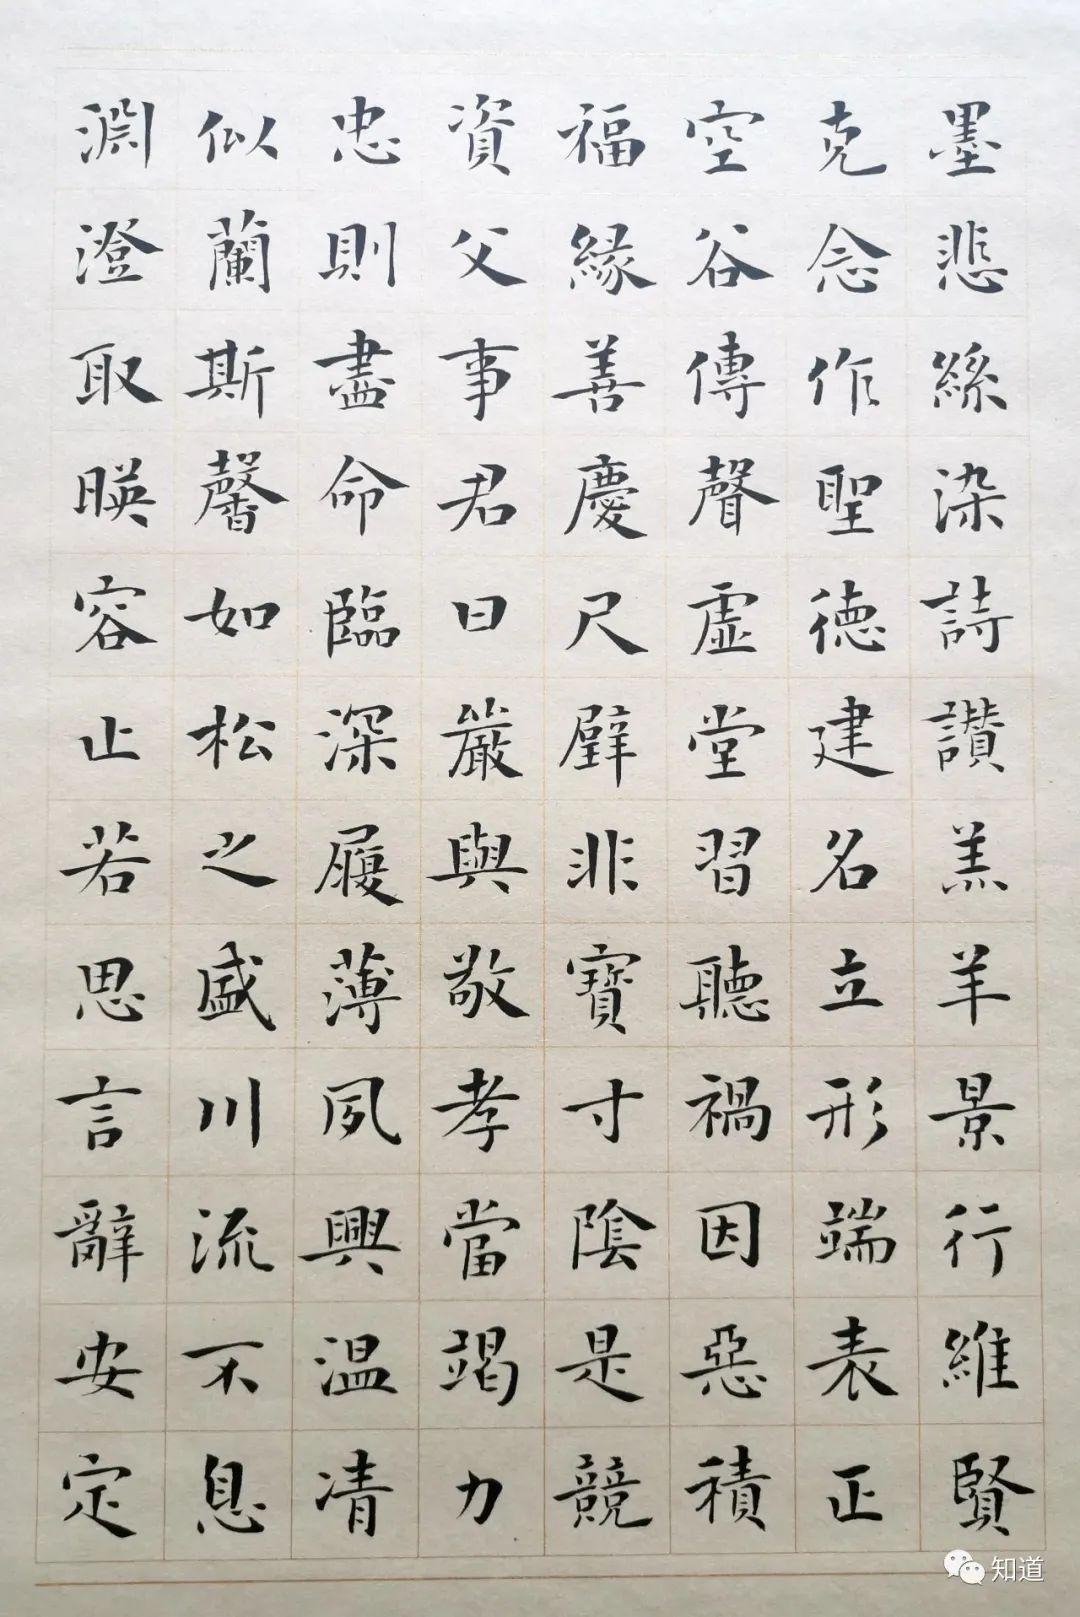 墨悲絲染詩讃羔羊景行維賢
克念作聖德建名立形端表正
空谷傳聲虛堂習聽禍因惡積
福緣善慶尺璧非寶寸陰是競
資父事君曰嚴與敬孝當竭力
忠則盡命臨深履薄夙興温凊
似蘭斯馨如松之盛川流不息
淵澄取暎容止若思言辭安定
知道